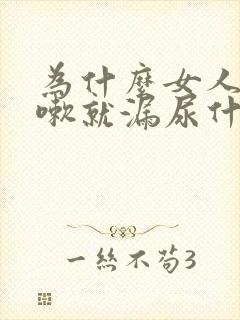 為什麼女人
嗽就漏尿什
一絲不茍3